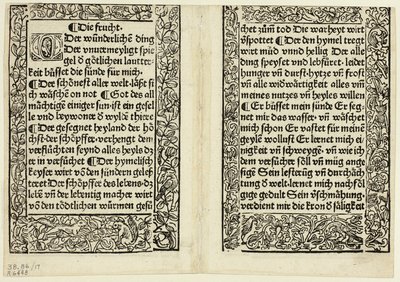 ¶ Die frucht.
Der wunderlichē ding
Der vnuermeyligt spie
gel ð götlichen lautter
keit büsset die sünde für mich.
¶ Der schönest aller welt läst si
ch wäschē on not ¶ Got des all
mächtigē einiger sun ist ein gesel
le vnd beywoner ð wyldē thiere
¶ Der gesegnet heyland der hö
chst der schöpffer verhengt dem
verflüchten feynd alles heyls dz
er in versüchet ¶ Der hymelisch
keyser wirt vō den sündern gelest
teret Der schöpffer des lebens dz
lebē vn̄ der lebentig macher wirt
vō den tödtlichen würmen gesü
chet zům tod Die warheyt wirt
v̄spottet ¶ Der den hymel tregt
wirt müd vnnd hellig Der alle
ding speyset vnd lebfüret leidet
hunger vn̄ durst hytze vn̄ frost
vn̄ alle widwärtigkeit alles vm̄
meines nutzes vn̄ heyles willen
¶ Er büsset mein sünde Er seg
net mir das wasser vn̄ wäschet
mich schon Er vastet für meinē
geyle wollust Er lernet mich ei
nigkeit vn̄ schweygē vn̄ wie ich
dem versücher söll vn̄ müg ange
sigē Sein lesterūg vn̄ durchäch
tung ð welt lernet mich nachföl
gige gedult Sein v̄schmähung
verdient mir die kron ð säligkeit
38.86/17
R6448